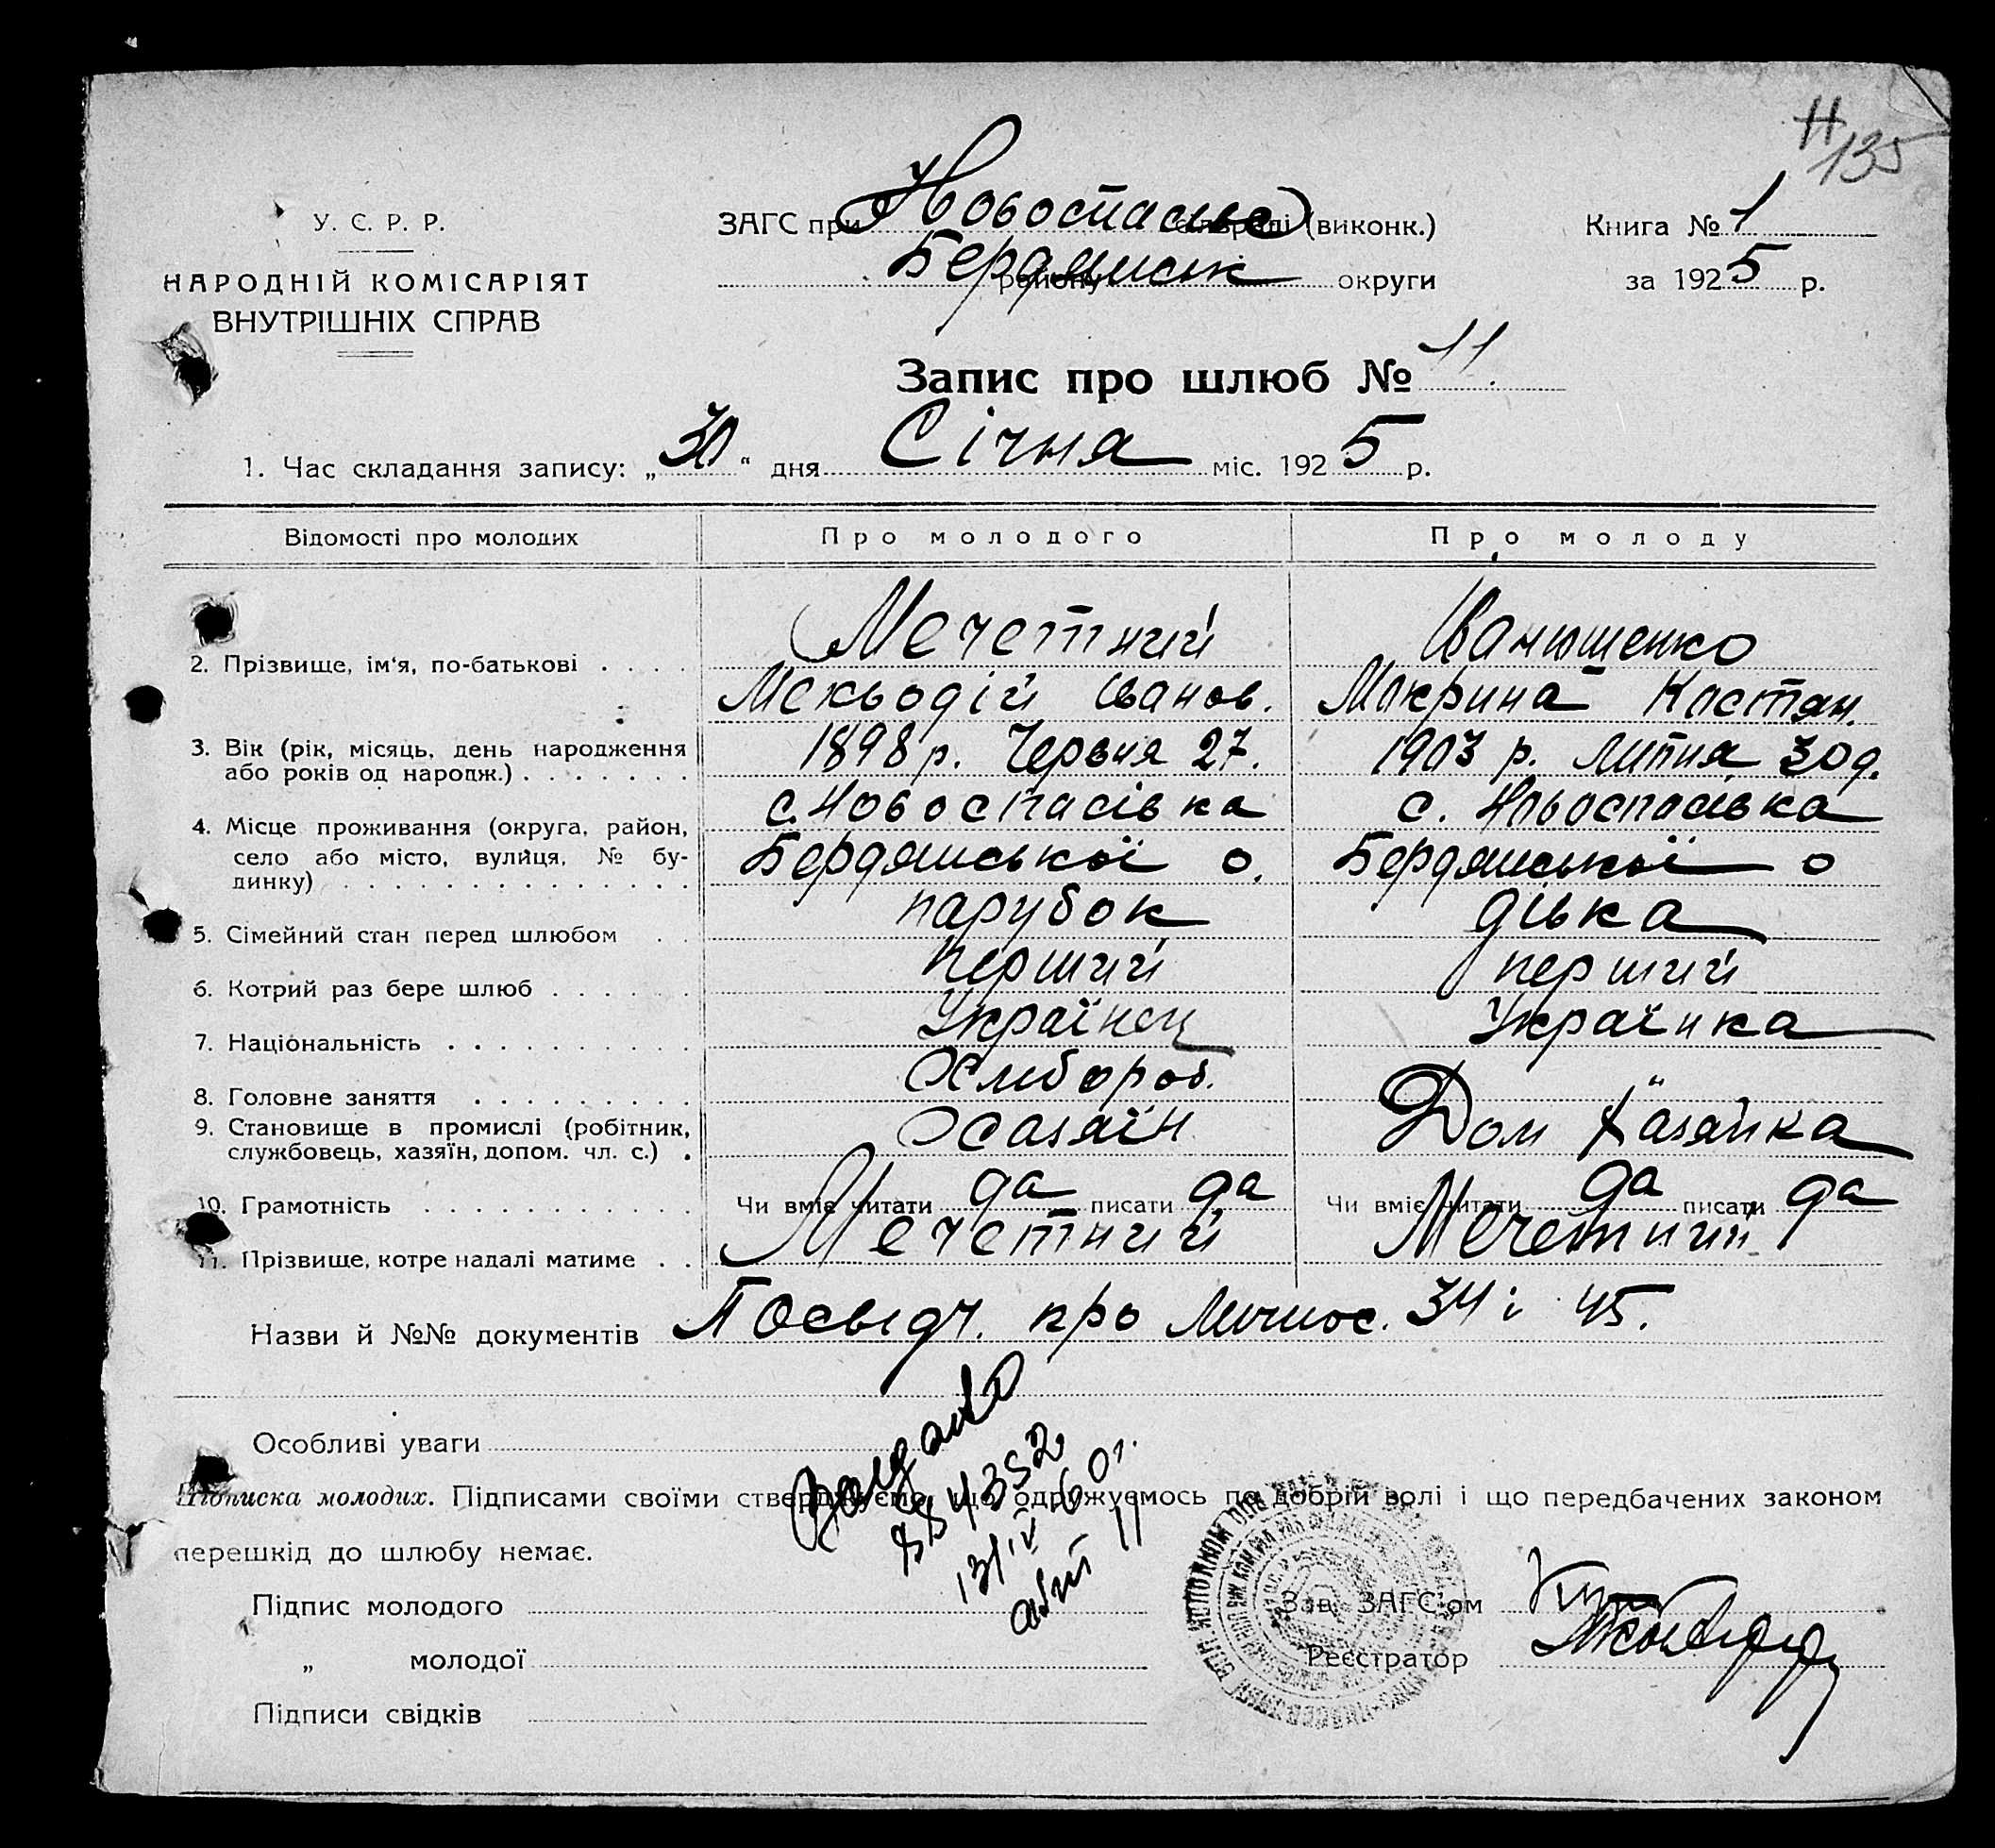 Н/135
У. С. Р. Р.
НАРОДНІЙ КОМІСАРІЯТ
ВНУТРІШНІХ СПРАВ
ЗАГС при Новоспасівс сільраді (виконк.)
Бердянськ району округи
Книга № 1
за 1925 р.
Запис про шлюб № 11.
1. Час складання запису: „30“ дня Січня міс. 1925 р.
Відомості про молодих Про молодого Про молоду
2. Прізвище, ім'я, по-батькові
Мечетний
Мекьодій Іванов.
Іванющенко
Макрина Костян.
3. Вік (рік, місяць, день народження
або років од народж.)
1898 р. Червня 27.
1903 р. Липня 30 д.
4. Місце проживання (округа, район,
село або місто, вулиця, № бу-
динку)
с. Новоспасівка
Бердянської о.
с. Новоспасівка
Бердянської о
5. Сімейний стан перед шлюбом парубок дівка
6. Котрий раз бере шлюб перший перший
7. Національність Українец Українка
8. Головне заняття Хлибороб. "
9. Становище в промислі (робітник,
службовець, хазяїн, допом. чл. с.)
Хазяїн Дом Хазяйка
10. Грамотність Чи вміє читати да писати да Чи вміє читати да писати да
11. Прізвище, котре надалі матиме Мечетний Мечетний
Назви й №№ документів Посвідч. про Личнос. 34 і 45.
Особливі уваги
13/IV 60 г.
Підписка молодих. Підписами своїми стверджуємо, що одружуємось по добрій волі і що передбачених законом
перешкід до шлюбу немає.
Підпис молодого
„ молодої
Підписи свідків
Зав. ЗАГС'ом
Реєстратор